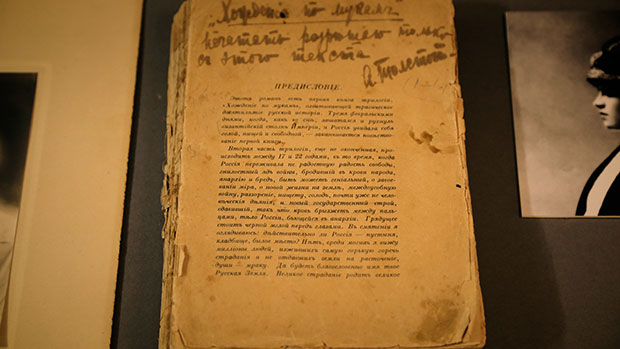 „Хожденіе по мукамъ"
печатать разрешаю только
с этого текста
А. Толстой
ПРЕДИСЛОВІЕ
Этотъ романъ есть первая книга трилогіи,
«Хожденіе по мукамъ», охватывающей трагическое
десятилѣтіе русской исторіи. Тремя февральскими
днями, когда, какъ во снѣ, зашатался и рухнулъ
византійскій столпъ Имперіи, и Россія увидѣла себя
голой, нищей и свободной, — заканчивается повѣство-
ваніе первой книги.
Вторая часть трилогіи, еще не оконченная, про-
исходитъ между 17 и 22 годами, въ то время, когда
Россія переживала не радостную радость свободы,
гнилостный ядъ войны, бродившій въ крови народа,
анархію и бредъ, быть можетъ геніальный, о заво-
еваніи міра, о новой жизни на землѣ, междоусобную
войну, разореніе, нищету, голодъ, почти уже не чело-
вѣческія дѣянія, и новый государственный строй,
сдавившій, такъ что кровь брызжетъ между паль-
цами, тѣло Россіи, бьющейся въ анархіи. Грядущее
стоитъ черной мглой передъ глазами. Въ смятеніи я
оглядываюсь: дѣйствительно ли Россія — пустыня,
кладбище, былое мѣсто? Нѣтъ, среди могилъ я вижу
милліоны людей, изжившихъ самую горькую горечь
страданія и не отдавшихъ земли на расточеніе,
души — мраку. Да будетъ благословенно имя твое
Русская Земля. Великое страданіе родитъ великое